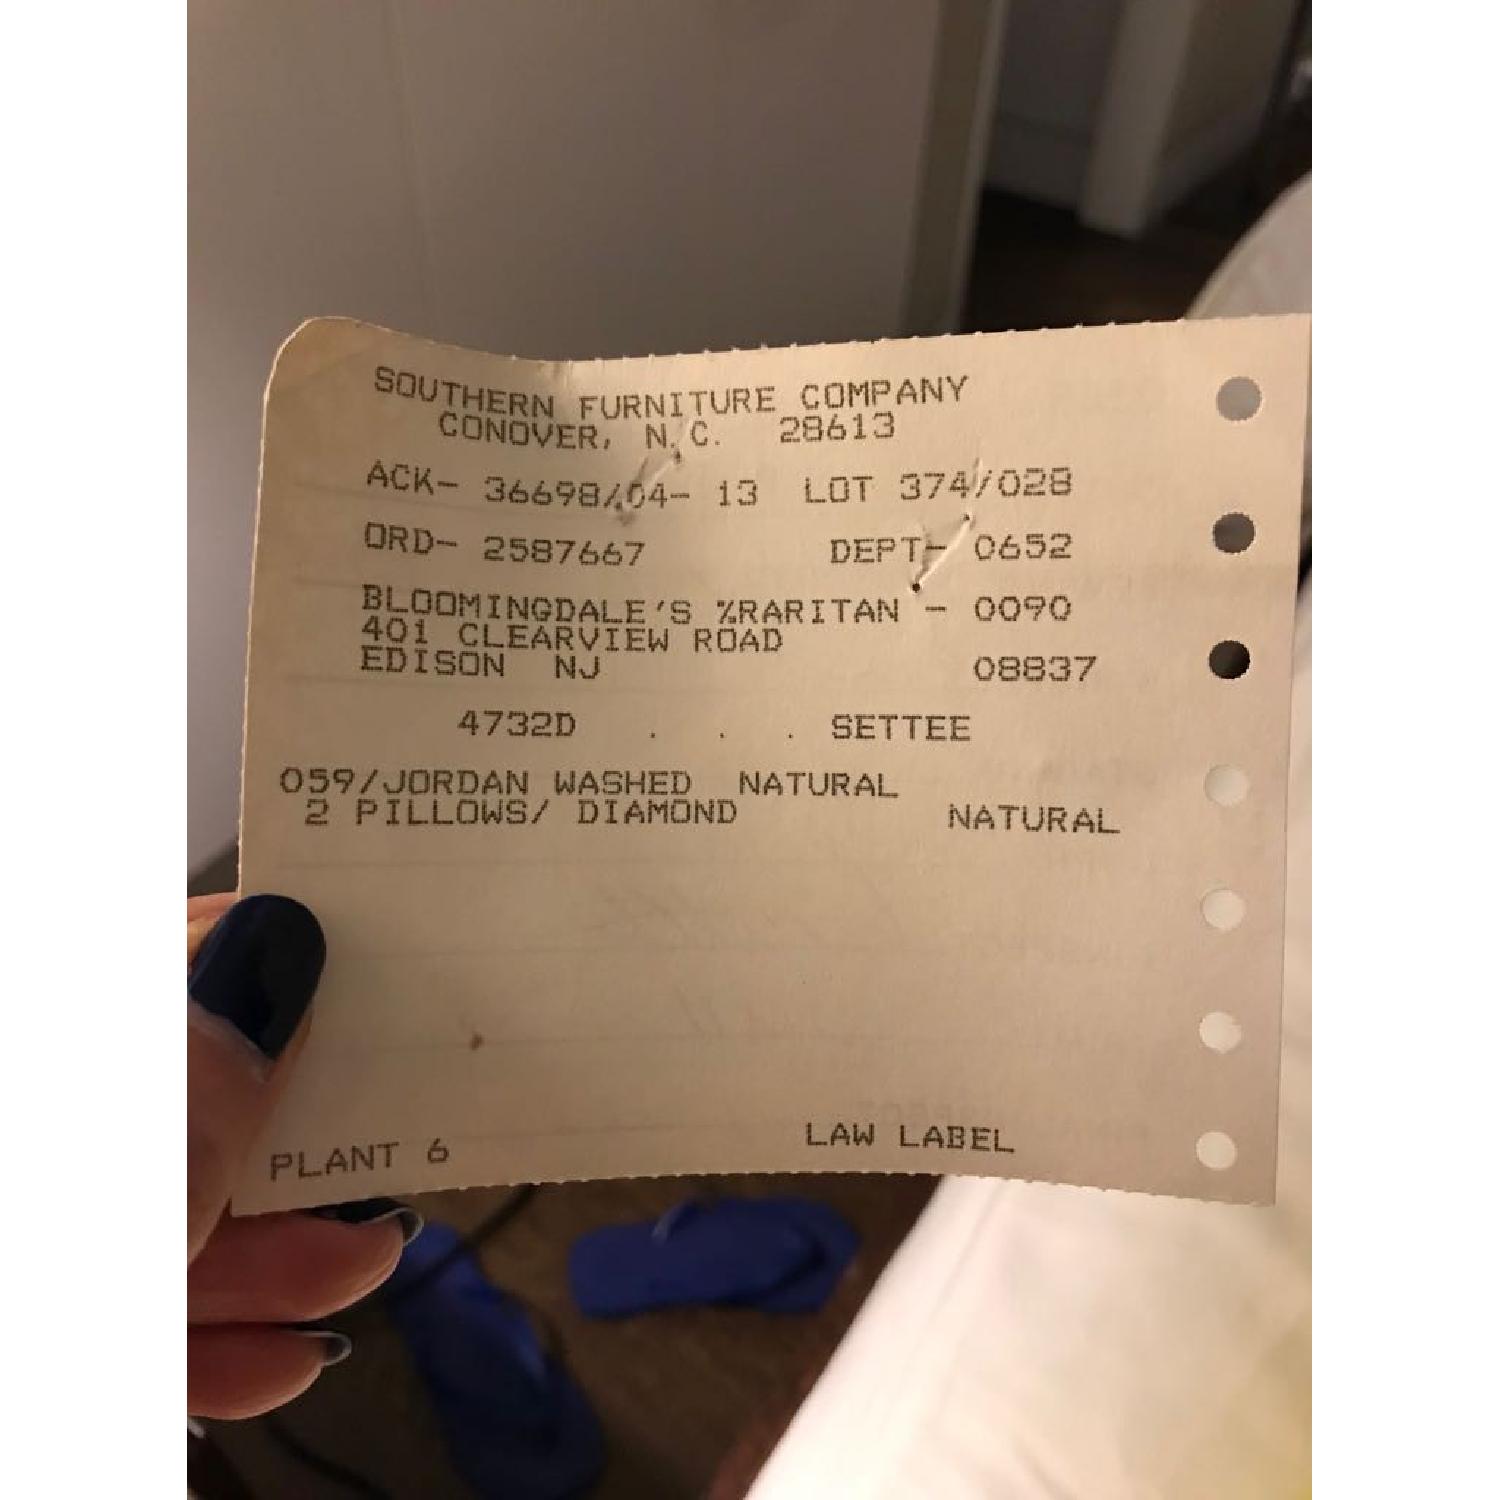 SOUTHERN FURNITURE COMPANY
CONOVER, N.C. 28613
ACK- 36698/04- 13 LOT 374/028
ORD- 2587667 DEPT- 0652
BLOOMINGDALE'S %RARITAN - 0090
401 CLEARVIEW ROAD
EDISON NJ 08837
4732D . . . SETTEE
059/JORDAN WASHED NATURAL
2 PILLOWS/ DIAMOND NATURAL
PLANT 6 LAW LABEL